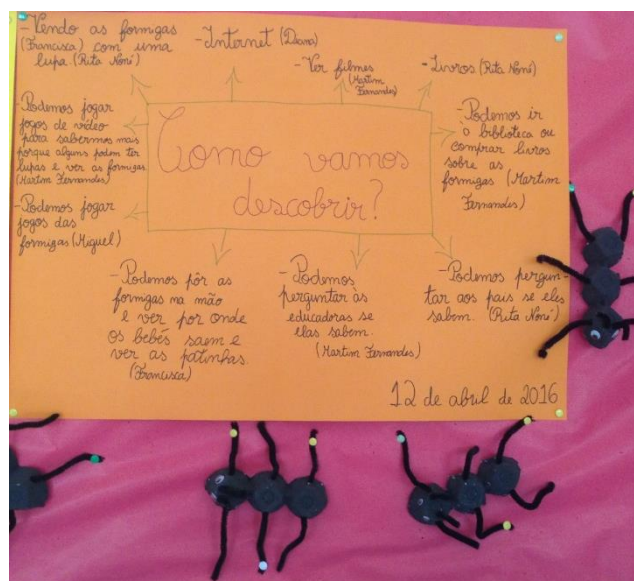 -Vendo as formigas
(Francisca) com uma
lupa. (Rita Noné)
-Internet (Diana)
-Ver filmes
(Martim
Fernandes)
-Livros (Rita Noné)
-Podemos jogar
jogos de vídeo
para sabermos mais
porque alguns podem ter
lupas e ver as formigas.
(Martim Fernandes)
-Podemos jogar
jogos das
formigas (Miguel)
Como vamos
descobrir?
-Podemos ir
à biblioteca ou
comprar livros
sobre as
formigas (Martim
Fernandes)
-Podemos pôr as
formigas na mão
e ver por onde
os bebés saem e
ver as patinhas.
(Francisca)
-Podemos
perguntar às
educadoras se
elas sabem.
(Martim Fernandes)
-Podemos pergun-
tar aos pais se eles
sabem. (Rita Noné)
12 de abril de 2016